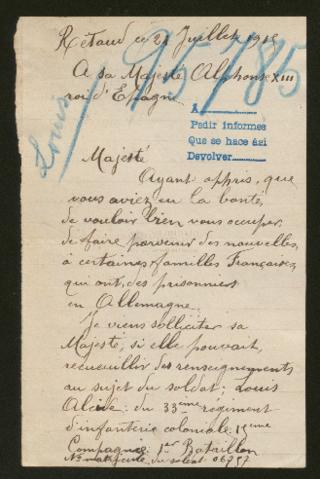 Rétaud ce 21 Juillet 1915
95785
A sa Majesté Alphonse XIII
roi d'Espagne
A
Pedir informes
Que se hace así
Devolver
Louis
Majesté
Ayant appris, que
vous aviez eu la bonté,
de vouloir bien vous occuper,
de faire parvenir des nouvelles,
à certaines familles Françaises,
qui ont, des prisonniers
en Allemagne.
Je viens solliciter sa
Majesté, si elle pouvait,
recueuillir des renseignements
au sujet du soldat; Louis
du 33eme régiment
d'infanterie coloniale 15eme
Compagnie 1er Bataillon
No matricule du soldat